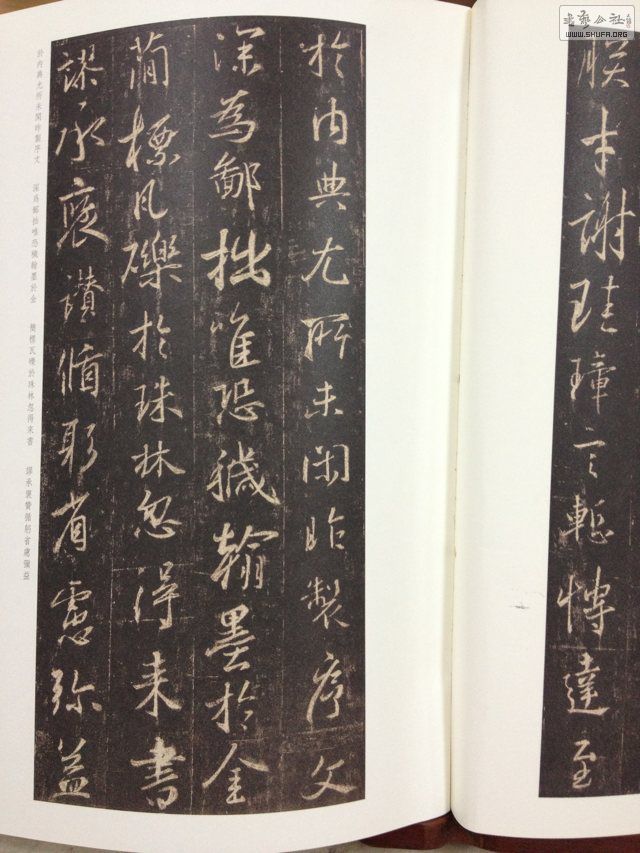 朕才謝珪璋言慙博達至
於內典尤所未閑昨製序文
深為鄙拙唯恐穢翰墨於金
簡標瓦礫於珠林忽得来書
謬承褒讃循躬省慮弥益
於內典尤所未閑昨製序文 深爲鄙拙唯恐穢翰墨於金 簡標瓦礫於珠林忽得來書 謬承褒贊循躬省慮彌益
WWW.SHUFA.ORG